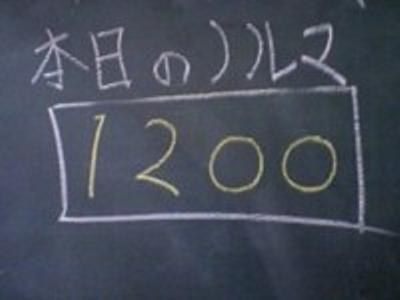 本日のノルマ
1200